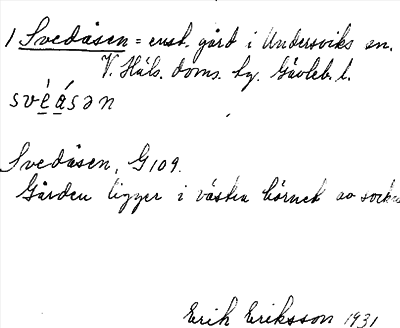 1 Svedåsen = ensk. gård i Undersviks sn.
V. Häls. doms. hg. Gävleb. l.
své̱á̱sən
Svedåsen, G 109.
Gården ligger i västra hörnet av socken
Erik Eriksson 1931